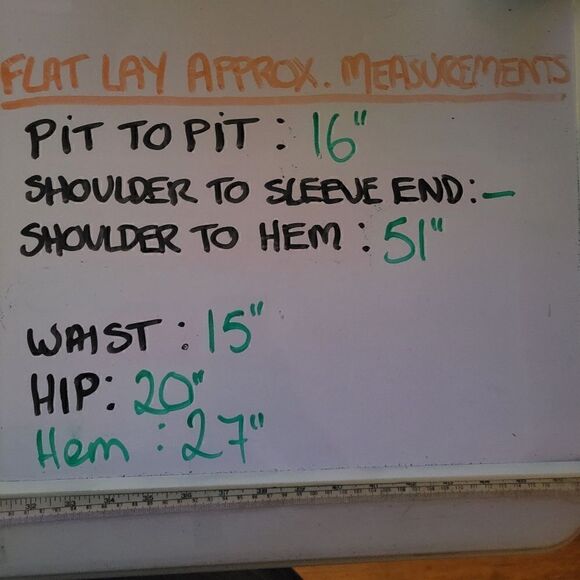 FLAT LAY APPROX. MEASUREMENTS
PiT TO PiT : 16"
SHOULDER TO SLEEVE END: -
SHOULDER TO HEM : 51"
WAIST : 15"
HIP: 20"
Hem : 27"